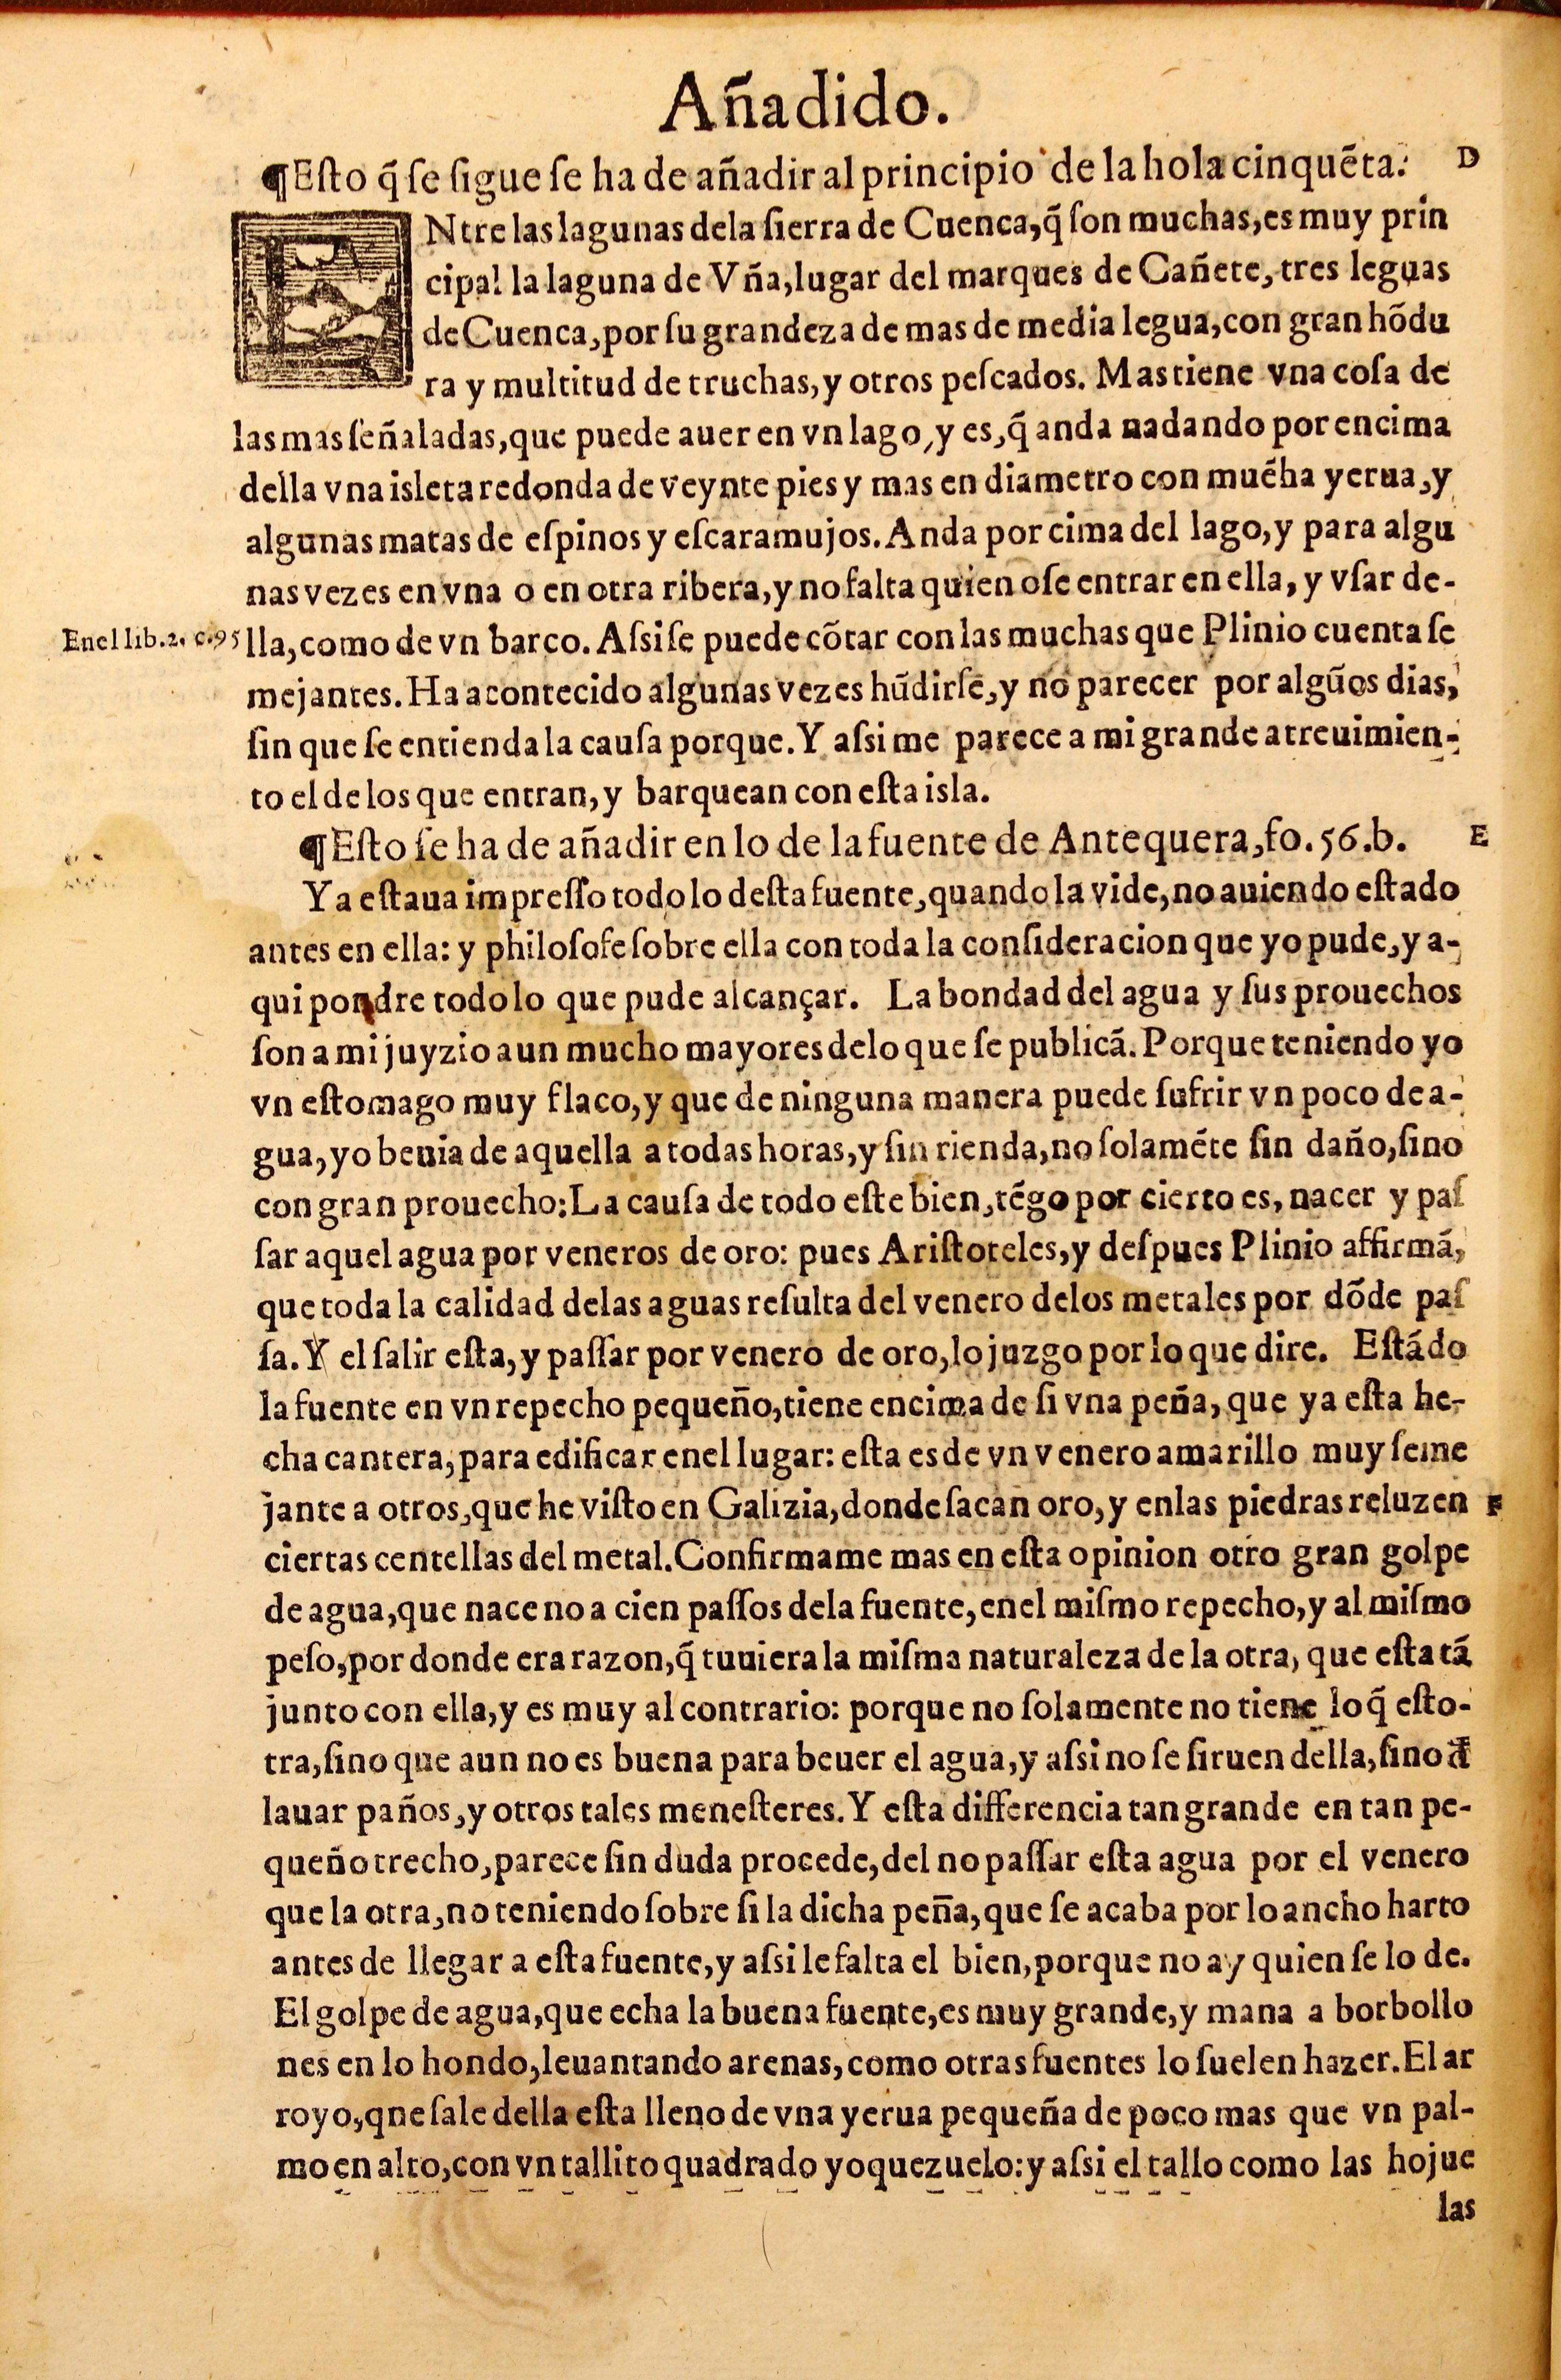 Añadido.
¶Eſto q̃ ſe ſigue ſe ha de añadir al principio de la hola cinquẽta. D
ENtre las lagunas dela ſierra de Cuenca, q̃ ſon muchas, es muy prin
cipal la laguna de Vña, lugar del marques de Cañete, tres leguas
de Cuenca, por ſu grandeza de mas de media legua, con gran hõdu
ra y multitud de truchas, y otros peſcados. Mas tiene vna coſa de
las mas ſeñaladas, que puede auer en vn lago, y es, q̃ anda nadando por encima
della vna isleta redonda de veynte pies y mas en diametro con mucha yerua, y
algunas matas de eſpinos y eſcaramujos. Anda por cima del lago, y para algu
nas vezes en vna o en otra ribera, y no falta quien oſe entrar en ella, y vſar de-
Enel lib.2. c.95
lla, como de vn barco. Aſsi ſe puede cõtar con las muchas que Plinio cuenta ſe
mejantes. Ha acontecido algunas vezes hũdirſe, y no parecer por algũos dias,
ſin que ſe entienda la cauſa porque. Y aſsi me parece a mi grande atreuimien-
to el de los que entran, y barquean con eſta isla.
¶Eſto ſe ha de añadir en lo de la fuente de Antequera, fo. 56. b. E
Ya eſtaua impreſſo todo lo deſta fuente, quando la vide, no auiendo eſtado
antes en ella: y philoſofe ſobre ella con toda la conſideracion que yo pude, y a-
qui pondre todo lo que pude alcançar. La bondad del agua y ſus prouechos
ſon a mi juyzio aun mucho mayores delo que ſe publicã. Porque teniendo yo
vn eſtomago muy flaco, y que de ninguna manera puede ſufrir vn poco de a-
gua, yo beuia de aquella a todas horas, y ſin rienda, no ſolamẽte ſin daño, ſino
con gran prouecho: La cauſa de todo eſte bien, tẽgo por cierto es, nacer y paſ
ſar aquel agua por veneros de oro: pues Ariſtoteles, y deſpues Plinio affirmã,
que toda la calidad delas aguas reſulta del venero delos metales por dõde paſ
ſa. Y el ſalir eſta, y paſſar por venero de oro, lo juzgo por lo que dire. Eſtãdo
la fuente en vn repecho pequeño, tiene encima de ſi vna peña, que ya eſta he-
cha cantera, para edificar enel lugar: eſta es de vn venero amarillo muy ſeme
jante a otros, que he viſto en Galizia, donde ſacan oro, y enlas piedras reluzen F
ciertas centellas del metal. Confirmame mas en eſta opinion otro gran golpe
de agua, que nace no a cien paſſos dela fuente, enel miſmo repecho, y al miſmo
peſo, por donde era razon, q̃ tuuiera la miſma naturaleza de la otra, que eſta tã
junto con ella, y es muy al contrario: porque no ſolamente no tiene lo q̃ eſto-
tra, ſino que aun no es buena para beuer el agua, y aſsi no ſe ſiruen della, ſino d̃
lauar paños, y otros tales meneſteres. Y eſta differencia tan grande en tan pe-
queño trecho, parece ſin duda procede, del no paſſar eſta agua por el venero
que la otra, no teniendo ſobre ſi la dicha peña, que ſe acaba por lo ancho harto
antes de llegar a eſta fuente, y aſsi le falta el bien, porque no ay quien ſe lo de.
El golpe de agua, que echa la buena fuente, es muy grande, y mana a borbollo
nes en lo hondo, leuantando arenas, como otras fuentes lo ſuelen hazer. El ar
royo, qne ſale della eſta lleno de vna yerua pequeña de poco mas que vn pal-
mo en alto, con vn tallito quadrado yoquezuelo: y aſsi el tallo como las hojue
las